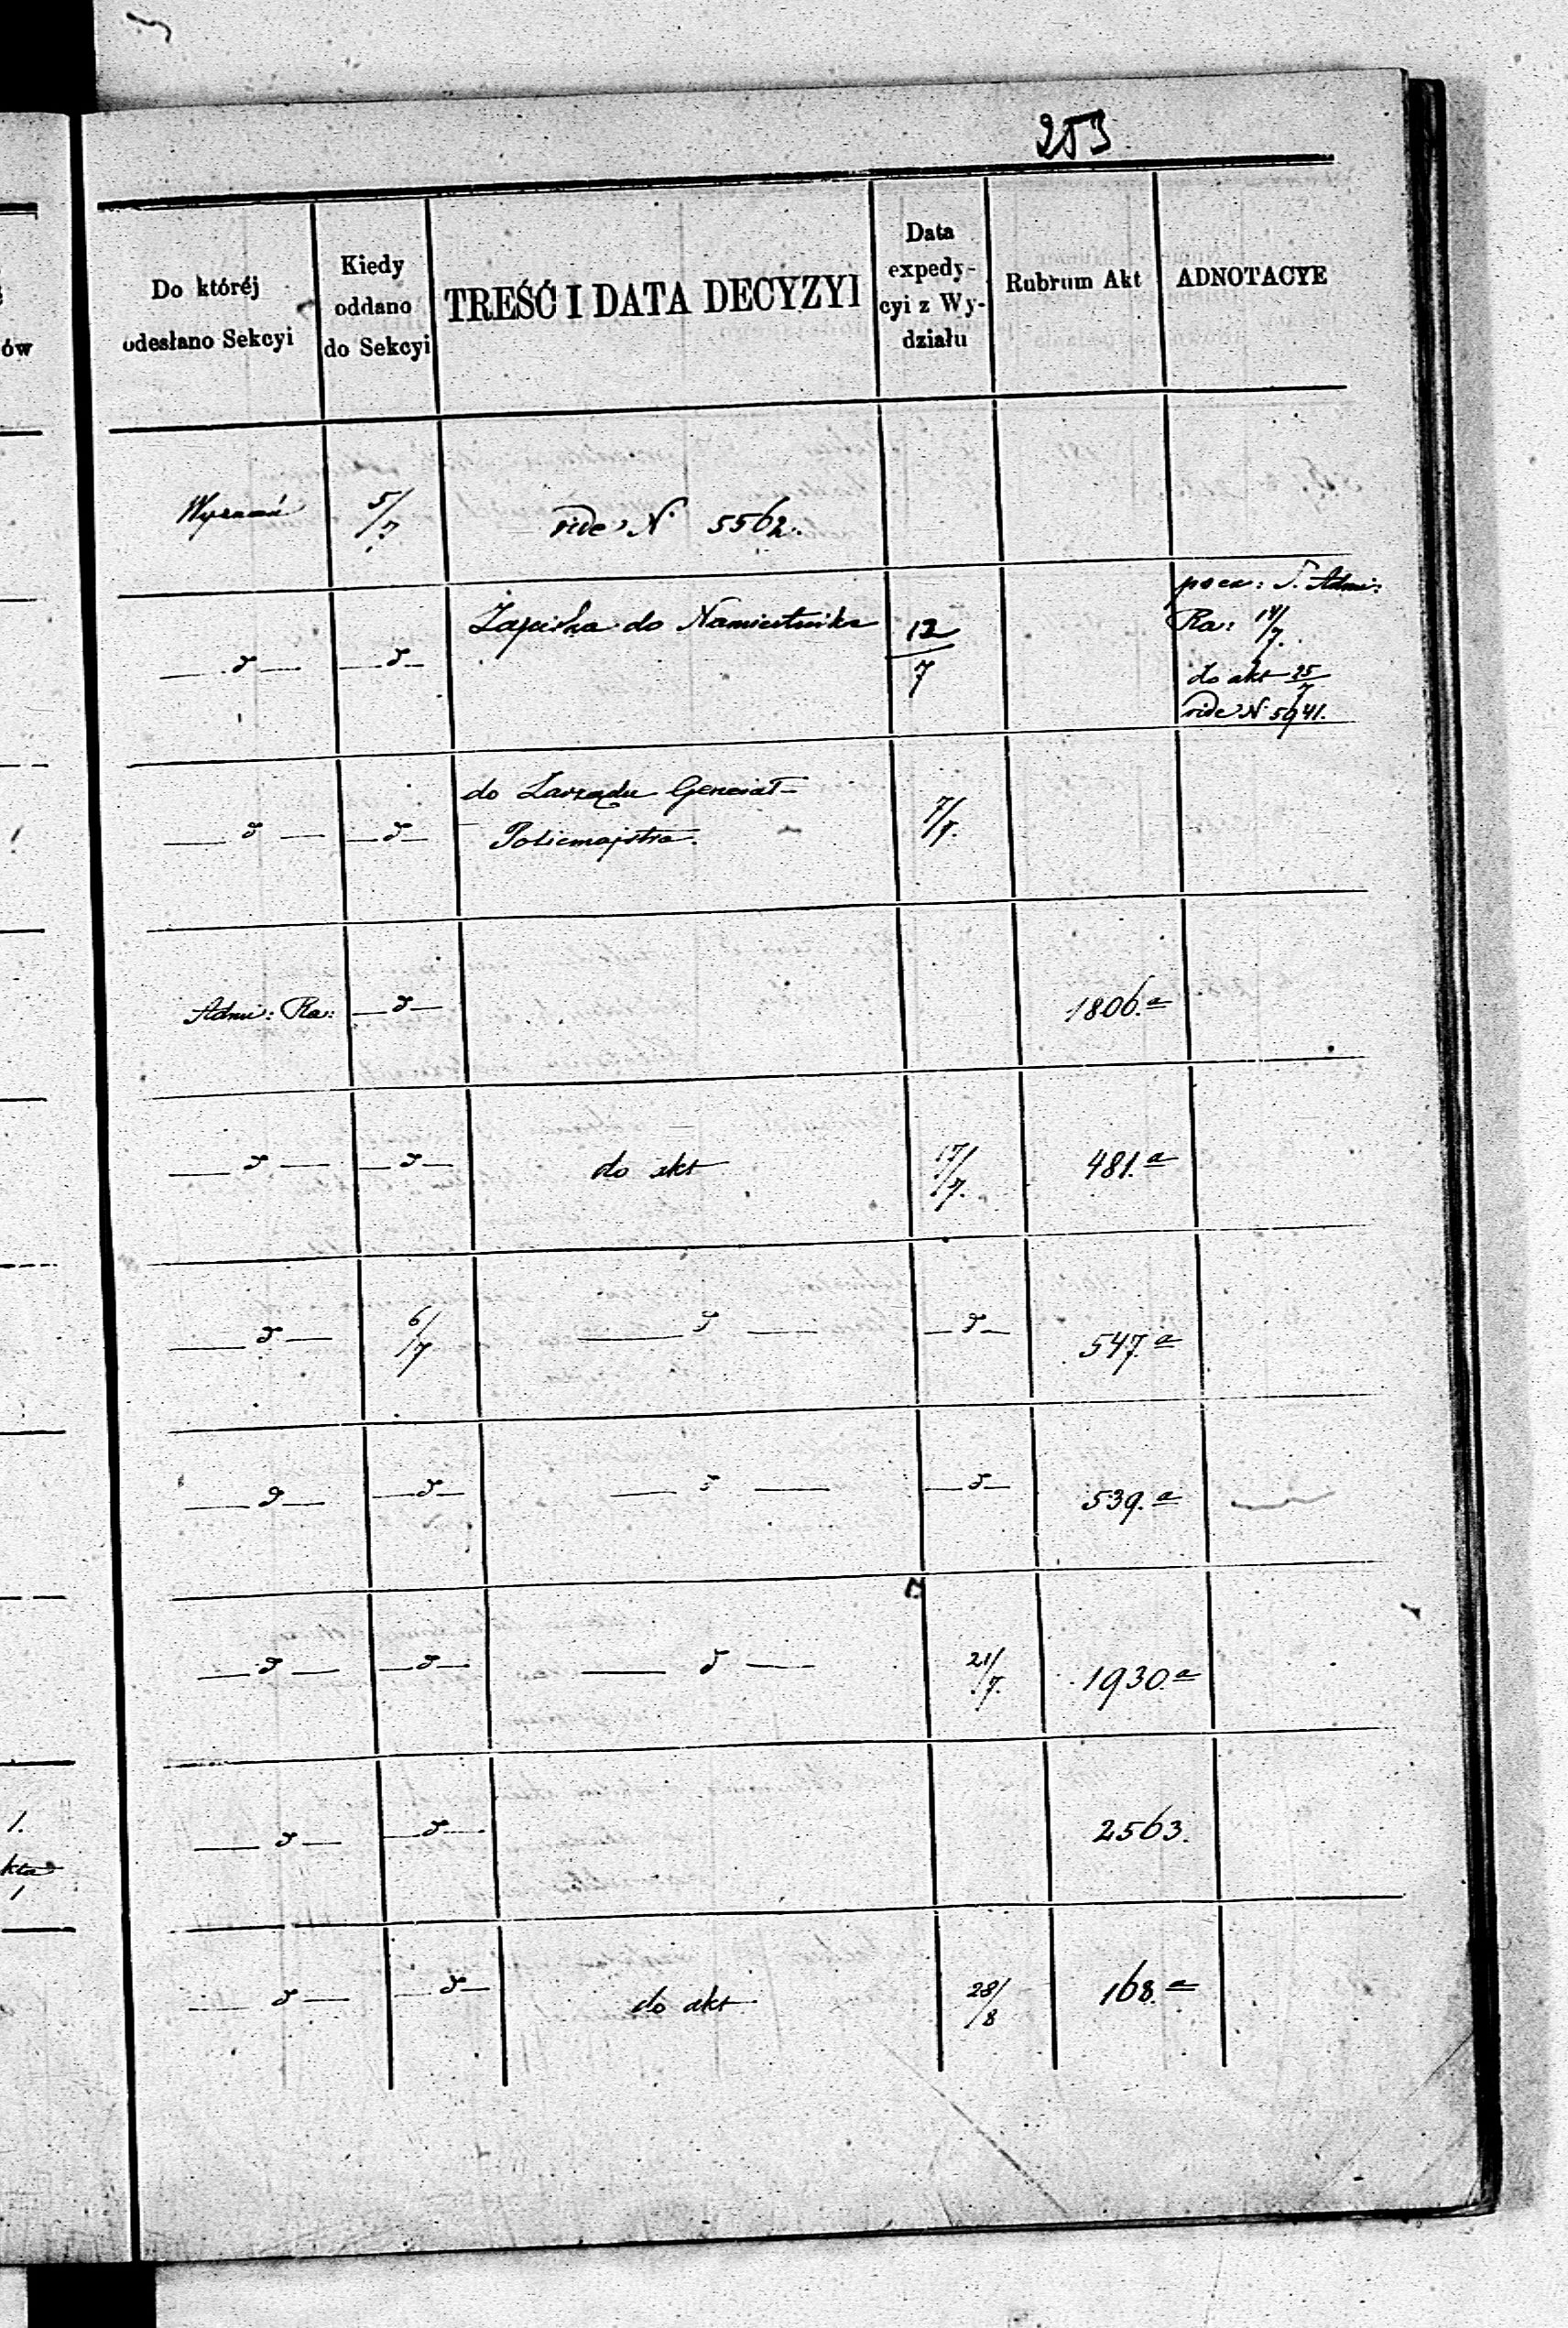 253.
Do któréj
odesłano Sekcyi
Kiedy
oddano
do Sekcyi
TREŚĆ I DATA DECYZYI
Data
expedy-
cyi z Wy-
działu
Rubrum Akt
ADNOTACYE
ów
Wyznań 5/7 vide N 5562.
— d — — d — Zapiska do Namiestnika 12/7
Adm:
Ra: 18/7.
do akt 25/7
vide N 5941.
— d — — d — do Zarządu Generał-
Policmajstra. 7/7.
Adm: Ra: — d — 1806.a
— d — — d — do akt 17/7. 481.a
— d — 6/7 — d — — d — 547.a
— d — — d — — d — — d — 539.a
— d — — d — — d — 21/7. 1930.a
— d — — d — 2563.
— d — — d — do akt 28/8 168.a